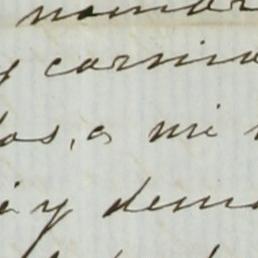 nombr
y carnic
dos, a mi
i y dema